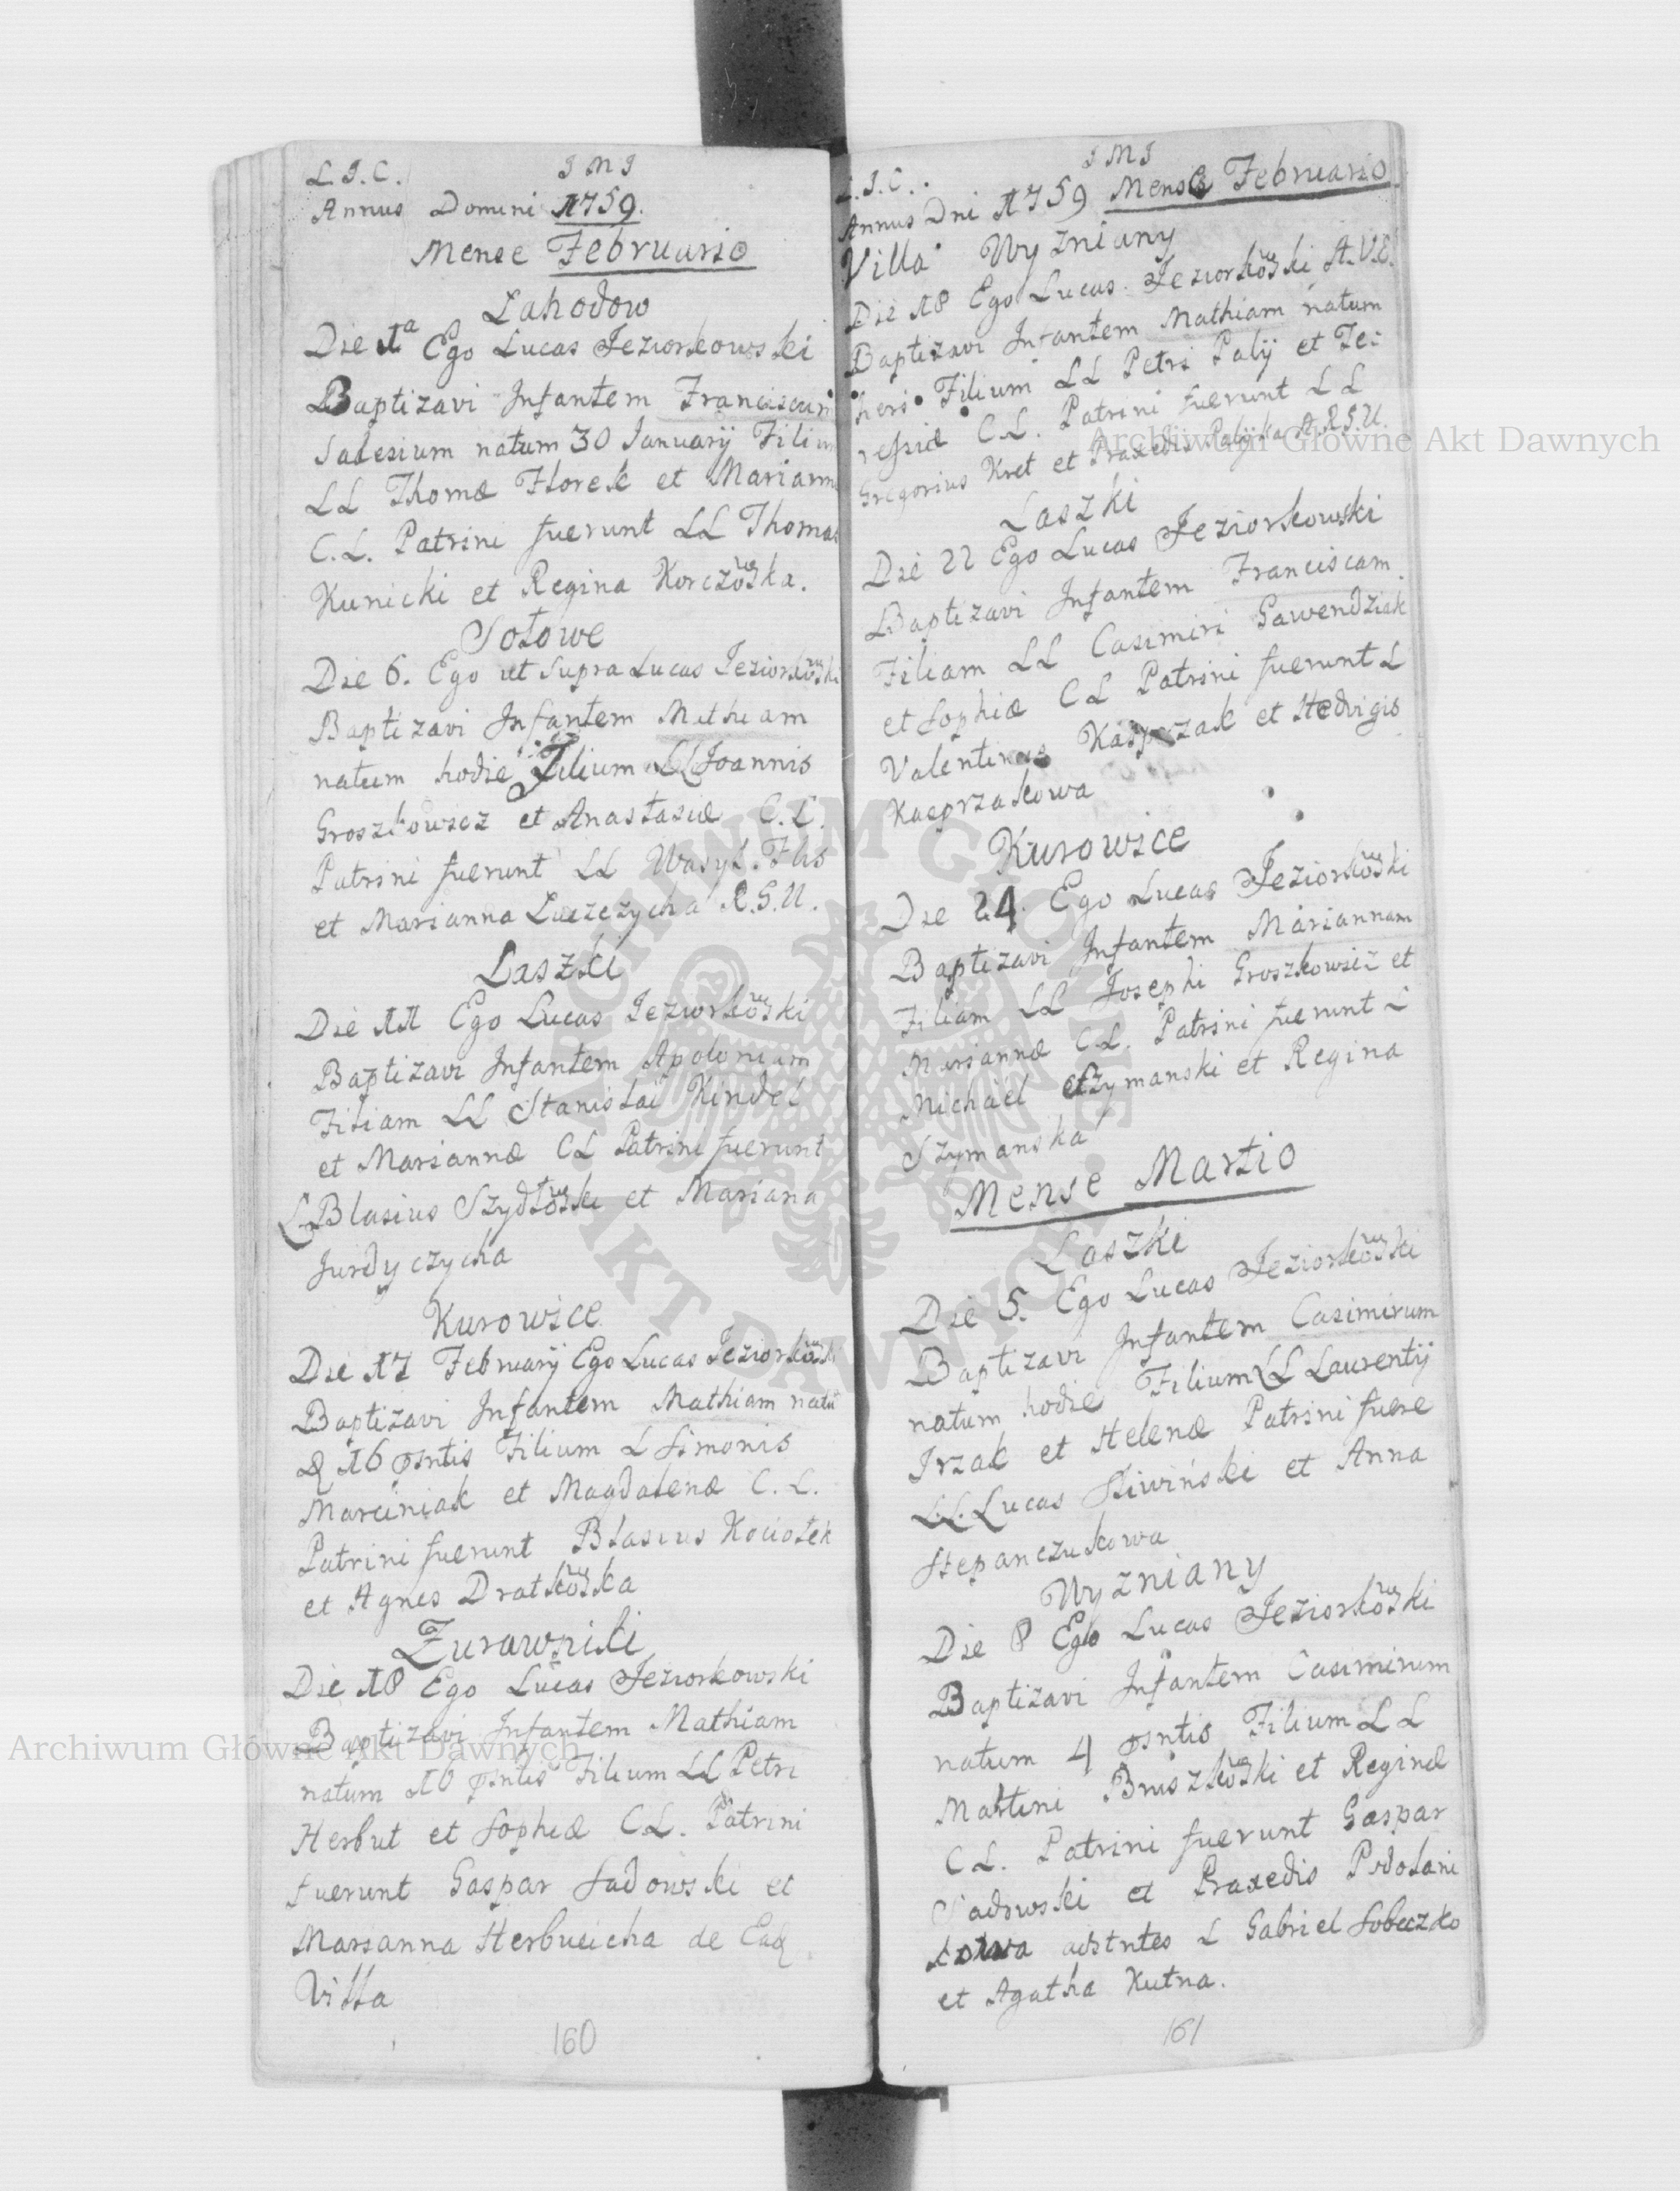 L.J.C. J M J
Annus Domini 1759.
Mense Februario
Lahodow
Die 1a Ego Lucas Jeziorkowski
Baptizavi Infantem Franciscum
Salesium natum 30 Januarij Filium
LL Thomæ Florek et Mariannæ
C.L. Patrini fuerunt LL Thomas
Kunicki et Regina Korczowska.
Sołowe
Die 6. Ego ut Supra Lucas Jeziorkowski
Baptizavi Infantem Mathiam
natum hodie Filium LL Joannis
Groszkowicz et Anastasiæ C.L.
Patrini fuerunt LL Wasyl
et Marianna R.G.U.
Laszki
Die 11 Ego Lucas Jeziorkowski
Baptizavi Infantem Apoloniam
Filiam LL Stanislai Kindel
et Mariannæ CL Patrini fuerunt
L Blasius Szydłowski et Mariana
Jurdyczycha
Kurowice
Die 17 Februarij Ego Lucas Jeziorkowski
Baptizavi Infantem Mathiam natū
16 psntis Filium L Simonis
Marciniak et Magdalenæ C.L.
Patrini fuerunt Blasius Kociołek
et Agnes Dratkowska
Zurawniki
Die 18 Ego Lucas Jeziorkowski
Baptizavi Infantem Mathiam
natum 16 psntis Filium LL Petri
Herbut et Sophiæ CL. Patrini
fuerunt Gaspar Sadowski et
Marianna Herbucicha de Eadem
Villa
160
L.J.C. J M J
Annus Dni 1759 Mense Februario
Villa Wyzniany
Die 18 Ego Lucas Jeziorkowski A.V.E.
Baptizavi Infantem Mathiam natum
heri Filium LL Petri Palij et Te:
ressiæ C.L. Patrini fuerunt LL
Gregorius Kret et Praxedis Palijka
Laszki
Die 22 Ego Lucas Jeziorkowski
Baptizavi Infantem Franciscam
Filiam LL Casimiri Gawendziak
et Sophiæ CL Patrini fuerunt L
Valentinus Kasprzak et Hedvigis
Kacprzakowa
Kurowice
Die 24. Ego Lucas Jeziorkowski
Baptizavi Infantem Mariannam
Filiam LL Josephi Groszkowicz et
Mariannæ C.L. Patrini fuerunt L
Michaël Szymanski et Regina
Szymanska
Mense Martio
Laszki
Die 5. Ego Lucas Jeziorkowski
Baptizavi Infantem Casimirum
natum hodie Filium LL Laurentij
Irzak et Helenæ Patrini fuere
L.L. Lucas Sliwiński et Anna
Stepanczukowa
Wyzniany
Die 8 Ego Lucas Jeziorkowski
Baptizavi Infantem Casimirum
natum 4 psntis Filium LL
Martini Bruszkowski et Reginæ
CL. Patrini fuerunt Gaspar
Sadowski et Praxedis Podolani
kowa adstntes L Gabriel Sobeczko
et Agatha Kutna.
161
Archiwum Główne Akt Dawnych
Archiwum Główne Akt Dawnych
ARCHIWUM GŁÓWNE AKT DAWNYCH